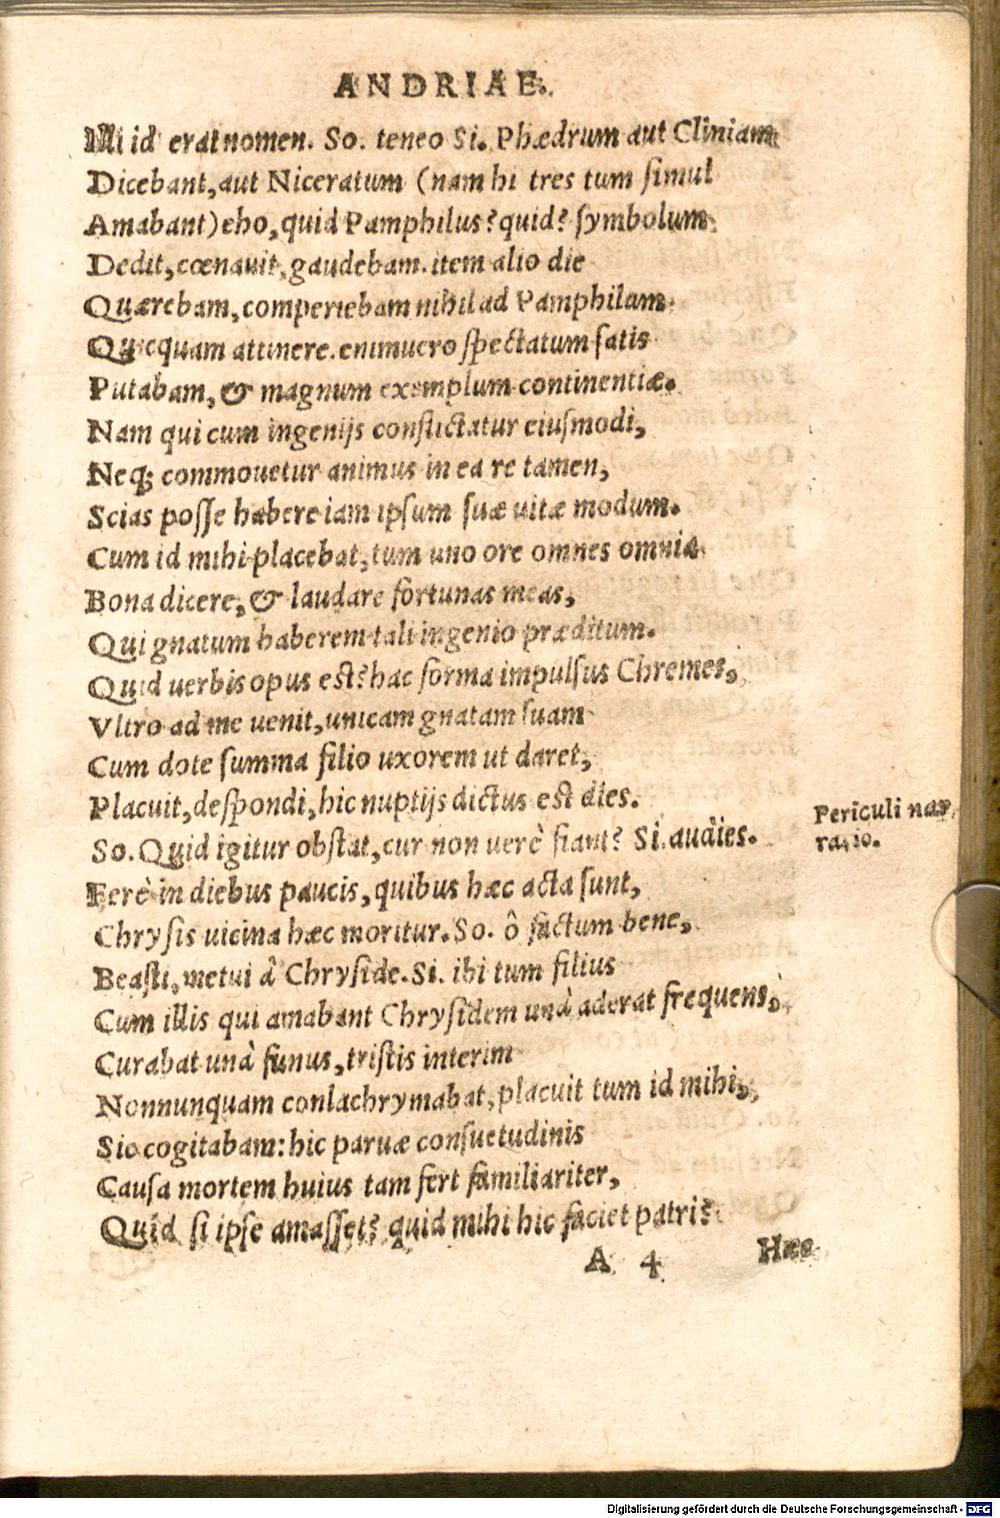 ANDRIAE.
Illi id erat nomen. So. teneo Si. Phædrum aut Cliniam
Dicebant, aut Niceratum (nam hi tres tum simul
Amabant) eho, quid Pamphilus? quid? symbolum
Dedit, cœnauit, gaudebam. item alio die
Quærebam, comperiebam nihil ad Pamphilum
Quicquam attinere. enimuero spectatum satis
Putabam, & magnum exemplum continentiæ.
Nam qui cum ingenijs conflictatur eiusmodi,
Neq; commouetur animus in ea re tamen,
Scias posse habere iam ipsum suæ uitæ modum.
Cum id mihi placebat, tum uno ore omnes omnia
Bona dicere, & laudare fortunas meas,
Qui gnatum haberem tali ingenio præditum.
Quid uerbis opus est? hac forma impulsus Chremes,
Vltro ad me uenit, unicam gnatam suam
Cum dote summa filio uxorem ut daret,
Placuit, despondi, hic nuptijs dictus est dies.
So. Quid igitur obstat, cur non uerè fiant? Si. audies.
Periculi nar
ratio.
Ferè in diebus paucis, quibus hæc acta sunt,
Chrysis uicina hæc moritur. So. ô factum bene,
Beasti, metui â Chryside. Si. ibi tum filius
Cum illis qui amabant Chrysidem unà aderat frequens,
Curabat unà funus, tristis interim
Nonnunquam conlachrymabat, placuit tum id mihi,
Sic cogitabam: hic paruæ consuetudinis
Causa mortem huius tam fert familiariter,
Quid si ipse amasset? quid mihi hic faciet patri?
A 4 Hæc
Digitalisierung gefördert durch die Deutsche Forschungsgemeinschaft - DFG